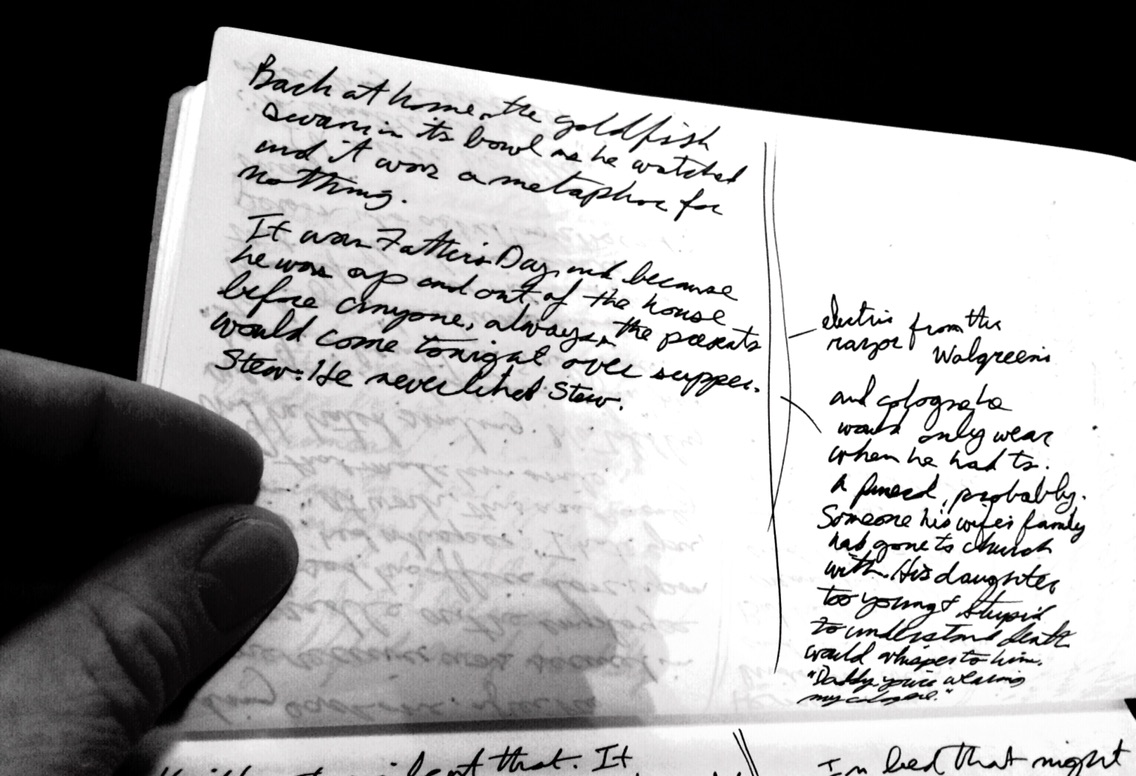 Back at home, the goldfish
swam in its bowl as he watched
and it was a metaphor for
nothing.
It was Father's Day, and because
he was up and out of the house
before anyone, always, the presents
would come tonight over supper.
Stew. He never liked Stew.
electric from the
razor Walgreens
and cologne he
would only wear
when he had to.
A funeral, probably.
Someone his wife's family
had gone to church
with. His daughter
too young & stupid
to understand death
would whisper to him.
"Daddy you're wearing
my cologne."
that. It
In bed that night